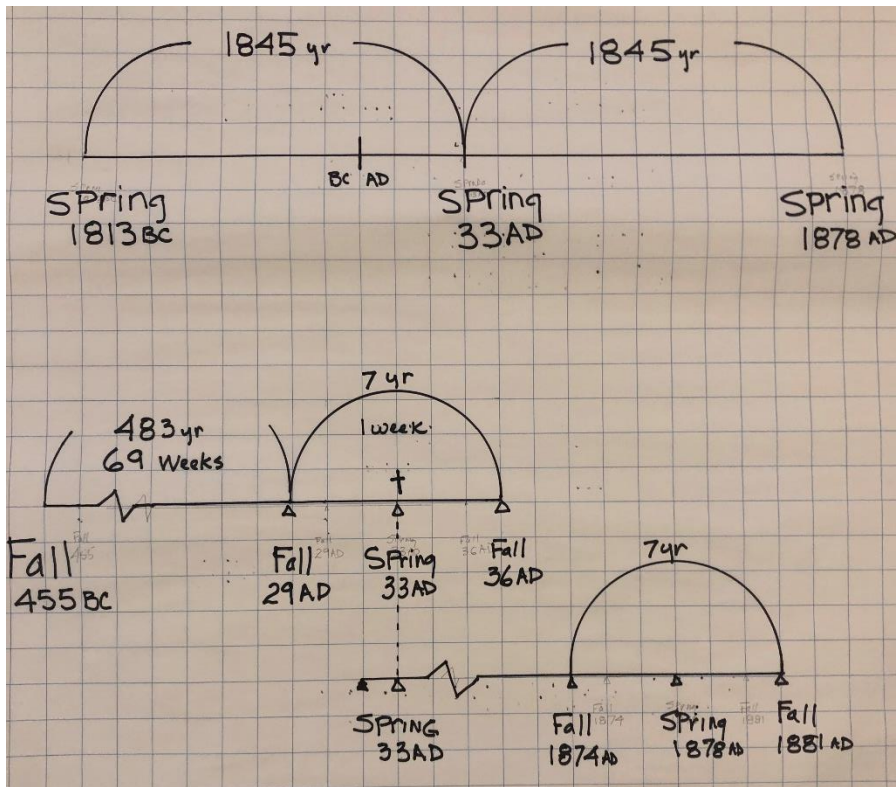 1845 yr
1845 yr
BC AD
Spring
1813 BC
Spring
33 AD
Spring
1878 AD
7 yr
1 week
483 yr
69 Weeks
Fall
455 BC
Fall
29 AD
Spring
33 AD
Fall
36 AD
7 yr
SPRING
33 AD
Fall
1874 AD
Spring
1878 AD
Fall
1881 AD